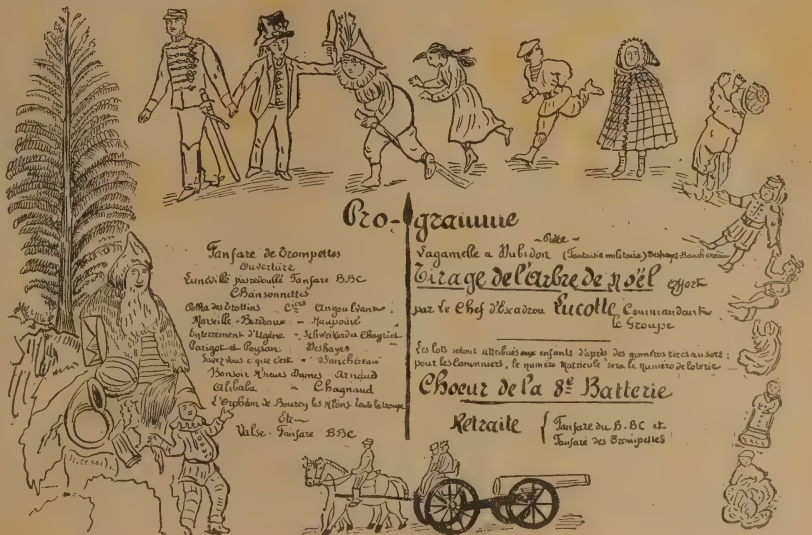 Pro-gramme
Fanfare de Trompettes
Ouverture
Lunéville pas redoublé Fanfare B.B.C
Chansonnettes
des Trottins Cers
Marseille-Bordeaux -
Enterrement d'Ugène -
Parigot et Paysan Deshayes
Savez vous c'que c'est Banchereau
Bonsoir M'sieurs Dames Arnaud
Alibaba - Chagnaud
L'Orphéon de Bourcy les M'lons toute la troupe
Etc
Valse - Fanfare BBC
- Pièce -
Lagamelle a Dubidon (Fantaisie militaire) Deshayes-Banchereau
Tirage de l'Arbre de Noël offert
par le Chef d'Escadron Lucotte Commandant
le Groupe
Les lots seront attribués aux enfants d'après des numéros tirés au sort ;
pour les Canonniers, le numéro Matricule sera le numéro de loterie
Choeur de la 8e Batterie
Retraite { Fanfare du B.BC et
Fanfare des Trompettes